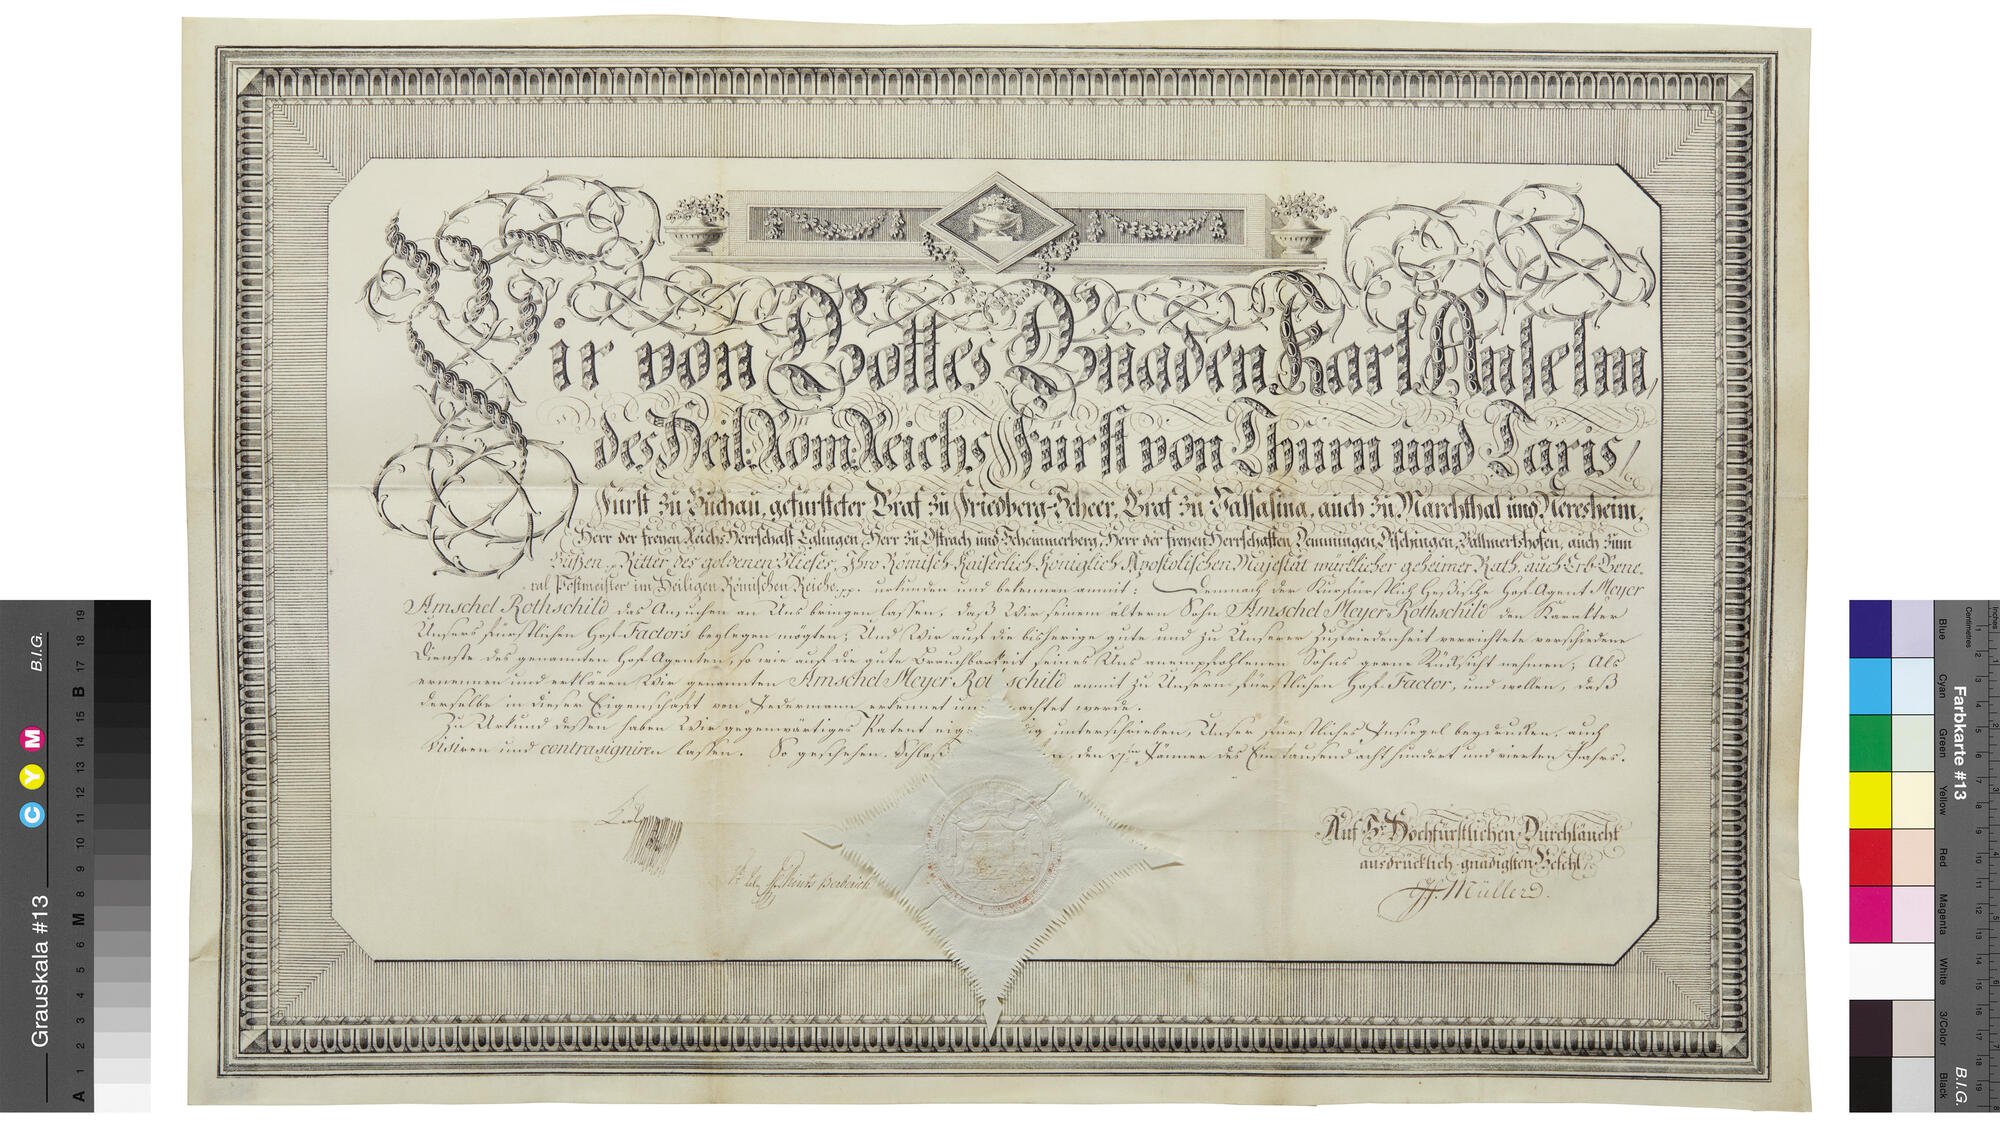 Wir von Gottes Gnaden Karl Anselm,
des Heil: Röm: Reichs Fürst von Thurn und Taxis,
Fürst zu Buchau, gefürsteter Graf zu Friedberg-Scheer, Graf zu Valsasina, auch zu Marchthal und Neresheim,
Herr der freyen Reichs Herrschaft Eglingen, Herr zu Ostrach und Schemmerberg, Herr der freyen Herrschaften Demmingen, Dischingen, Ballmertshofen, auch zum
Bußen, Ritter des goldenen Vließes, Ihro Römisch-Kaiserlich-Königlich Apostolischen Majestät würklicher geheimer Rath, auch Erb-Gene-
ral Postmeister im Heiligen Römischen Reiche, pp. urkunden und bekennen anmit: Demnach der Kurfürstlich Heßische Hof-Agent Meyer
Amschel Rothschild das Ansuchen an Uns bringen lassen, daß Wir seinem ältern Sohn Amschel Meyer Rothschild den Karakter
Unsers fürstlichen Hof-Factors beylegen mögten; Und Wir auf die bisherige gute und zu Unserer Zufriedenheit verrichtete verschiedene
Dienste des genannten Hof-Agenten, so wie auf die gute Brauchbarkeit seines Uns anempfohlenen Sohns gerne Rücksicht nehmen; Als
ernennen und erklären Wir genannten Amschel Meyer Rothschild anmit zu Unserm fürstlichen Hof-Factor, und wollen, daß
derselbe in dieser Eigenschaft von Jedermann erkennet und geachtet werde.
Zu Urkund dessen haben Wir gegenwärtiges Patent eigenhändig unterschrieben, Unser fürstliches Insiegel beydrucken, auch
visiren und contrasigniren lassen. So geschehen, Schloß den Jänner des Eintausend acht hundert und vierten Jahrs.
Auf Sr Hochfürstlichen Durchlaucht
ausdrücklich-gnädigsten Befehl
Müller
Berberich
Grauskala #13
B.I.G.
C Y M
A 1 2 3 4 5 6 M 8 9 10 11 12 13 14 15 B 17 18 19
Farbkarte #13
B.I.G.
Inches
Centimetres
Blue
Cyan
Green
Yellow
Red
Magenta
White
3/Color
Black